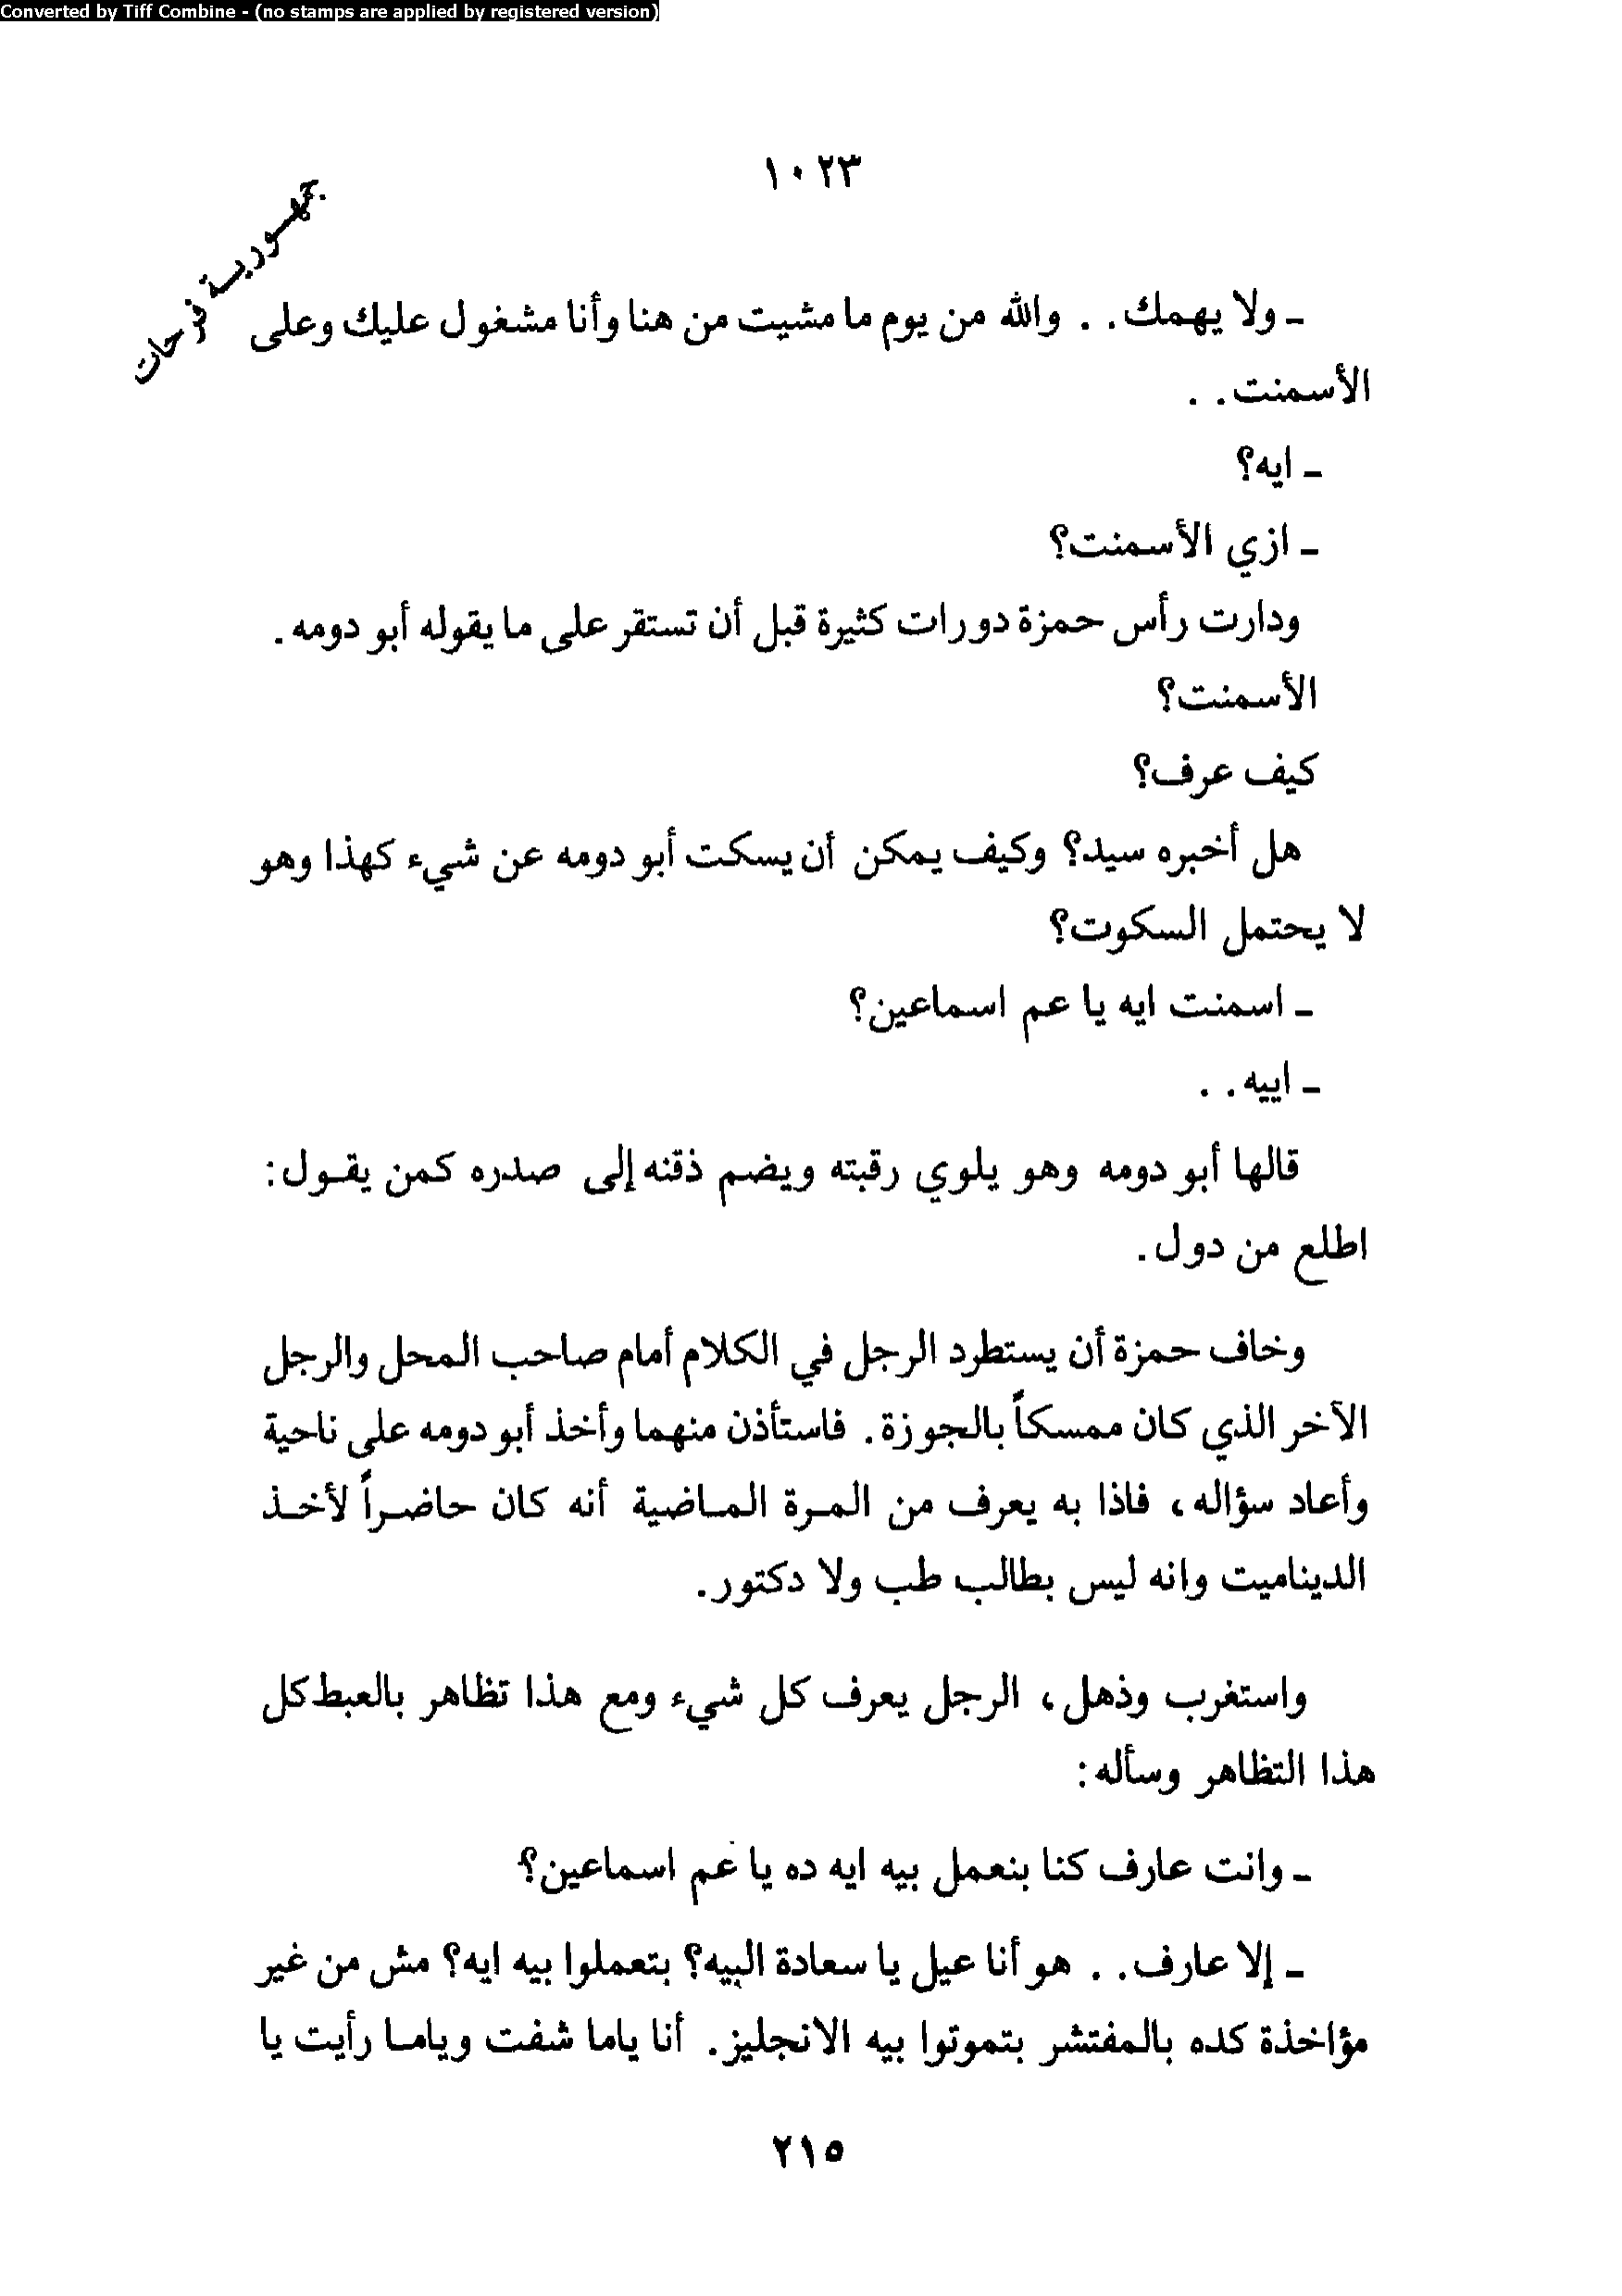 Converted by Tiff Combine - (no stamps are applied by registered version)
١٠٢٣
جمهورية فرحات
ـ ولا يهمك. . والله من يوم ما مشيت من هنا وأنا مشغول عليك وعلى
الأسمنت. .
ـ ايه؟
ـ ازي الأسمنت؟
ودارت رأس حمزة دورات كثيرة قبل أن تستقر على ما يقوله أبو دومه.
الأسمنت؟
كيف عرف؟
هل أخبره سيد؟ وكيف يمكن أن يسكت أبو دومه عن شيء كهذا وهو
لا يحتمل السكوت؟
ـ اسمنت ايه يا عم اسماعين؟
ـ اييه. .
قالها أبو دومه وهو يلوي رقبته ويضم ذقنه إلى صدره كمن يقـول:
اطلع من دول.
وخاف حمزة أن يستطرد الرجل في الكلام أمام صاحب المحل والرجل
الآخر الذي كان ممسكاً بالجوزة. فاستأذن منهما وأخذ أبو دومه على ناحية
وأعاد سؤاله، فاذا به يعرف من المـرة المـاضية أنه كان حاضـراً لأخـذ
الديناميت وانه ليس بطالب طب ولا دكتور.
واستغرب وذهل، الرجل يعرف كل شيء ومع هذا تظاهر بالعبط كل
هذا التظاهر وسأله:
ـ وانت عارف كنا بنعمل بيه ايه ده يا عم اسماعين؟
ـ إلا عارف. . هو أنا عيل يا سعادة البيه؟ بتعملوا بيه ايه؟ مش من غير
مؤاخذة كده بالمفتشر بتموتوا بيه الانجليز. أنا ياما شفت ويامـا رأيت يا
٢١٥